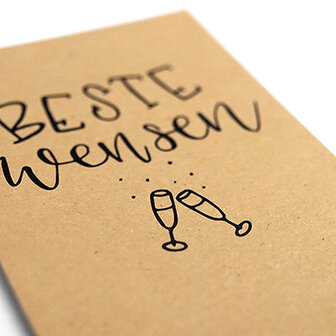 BESTE
wensen